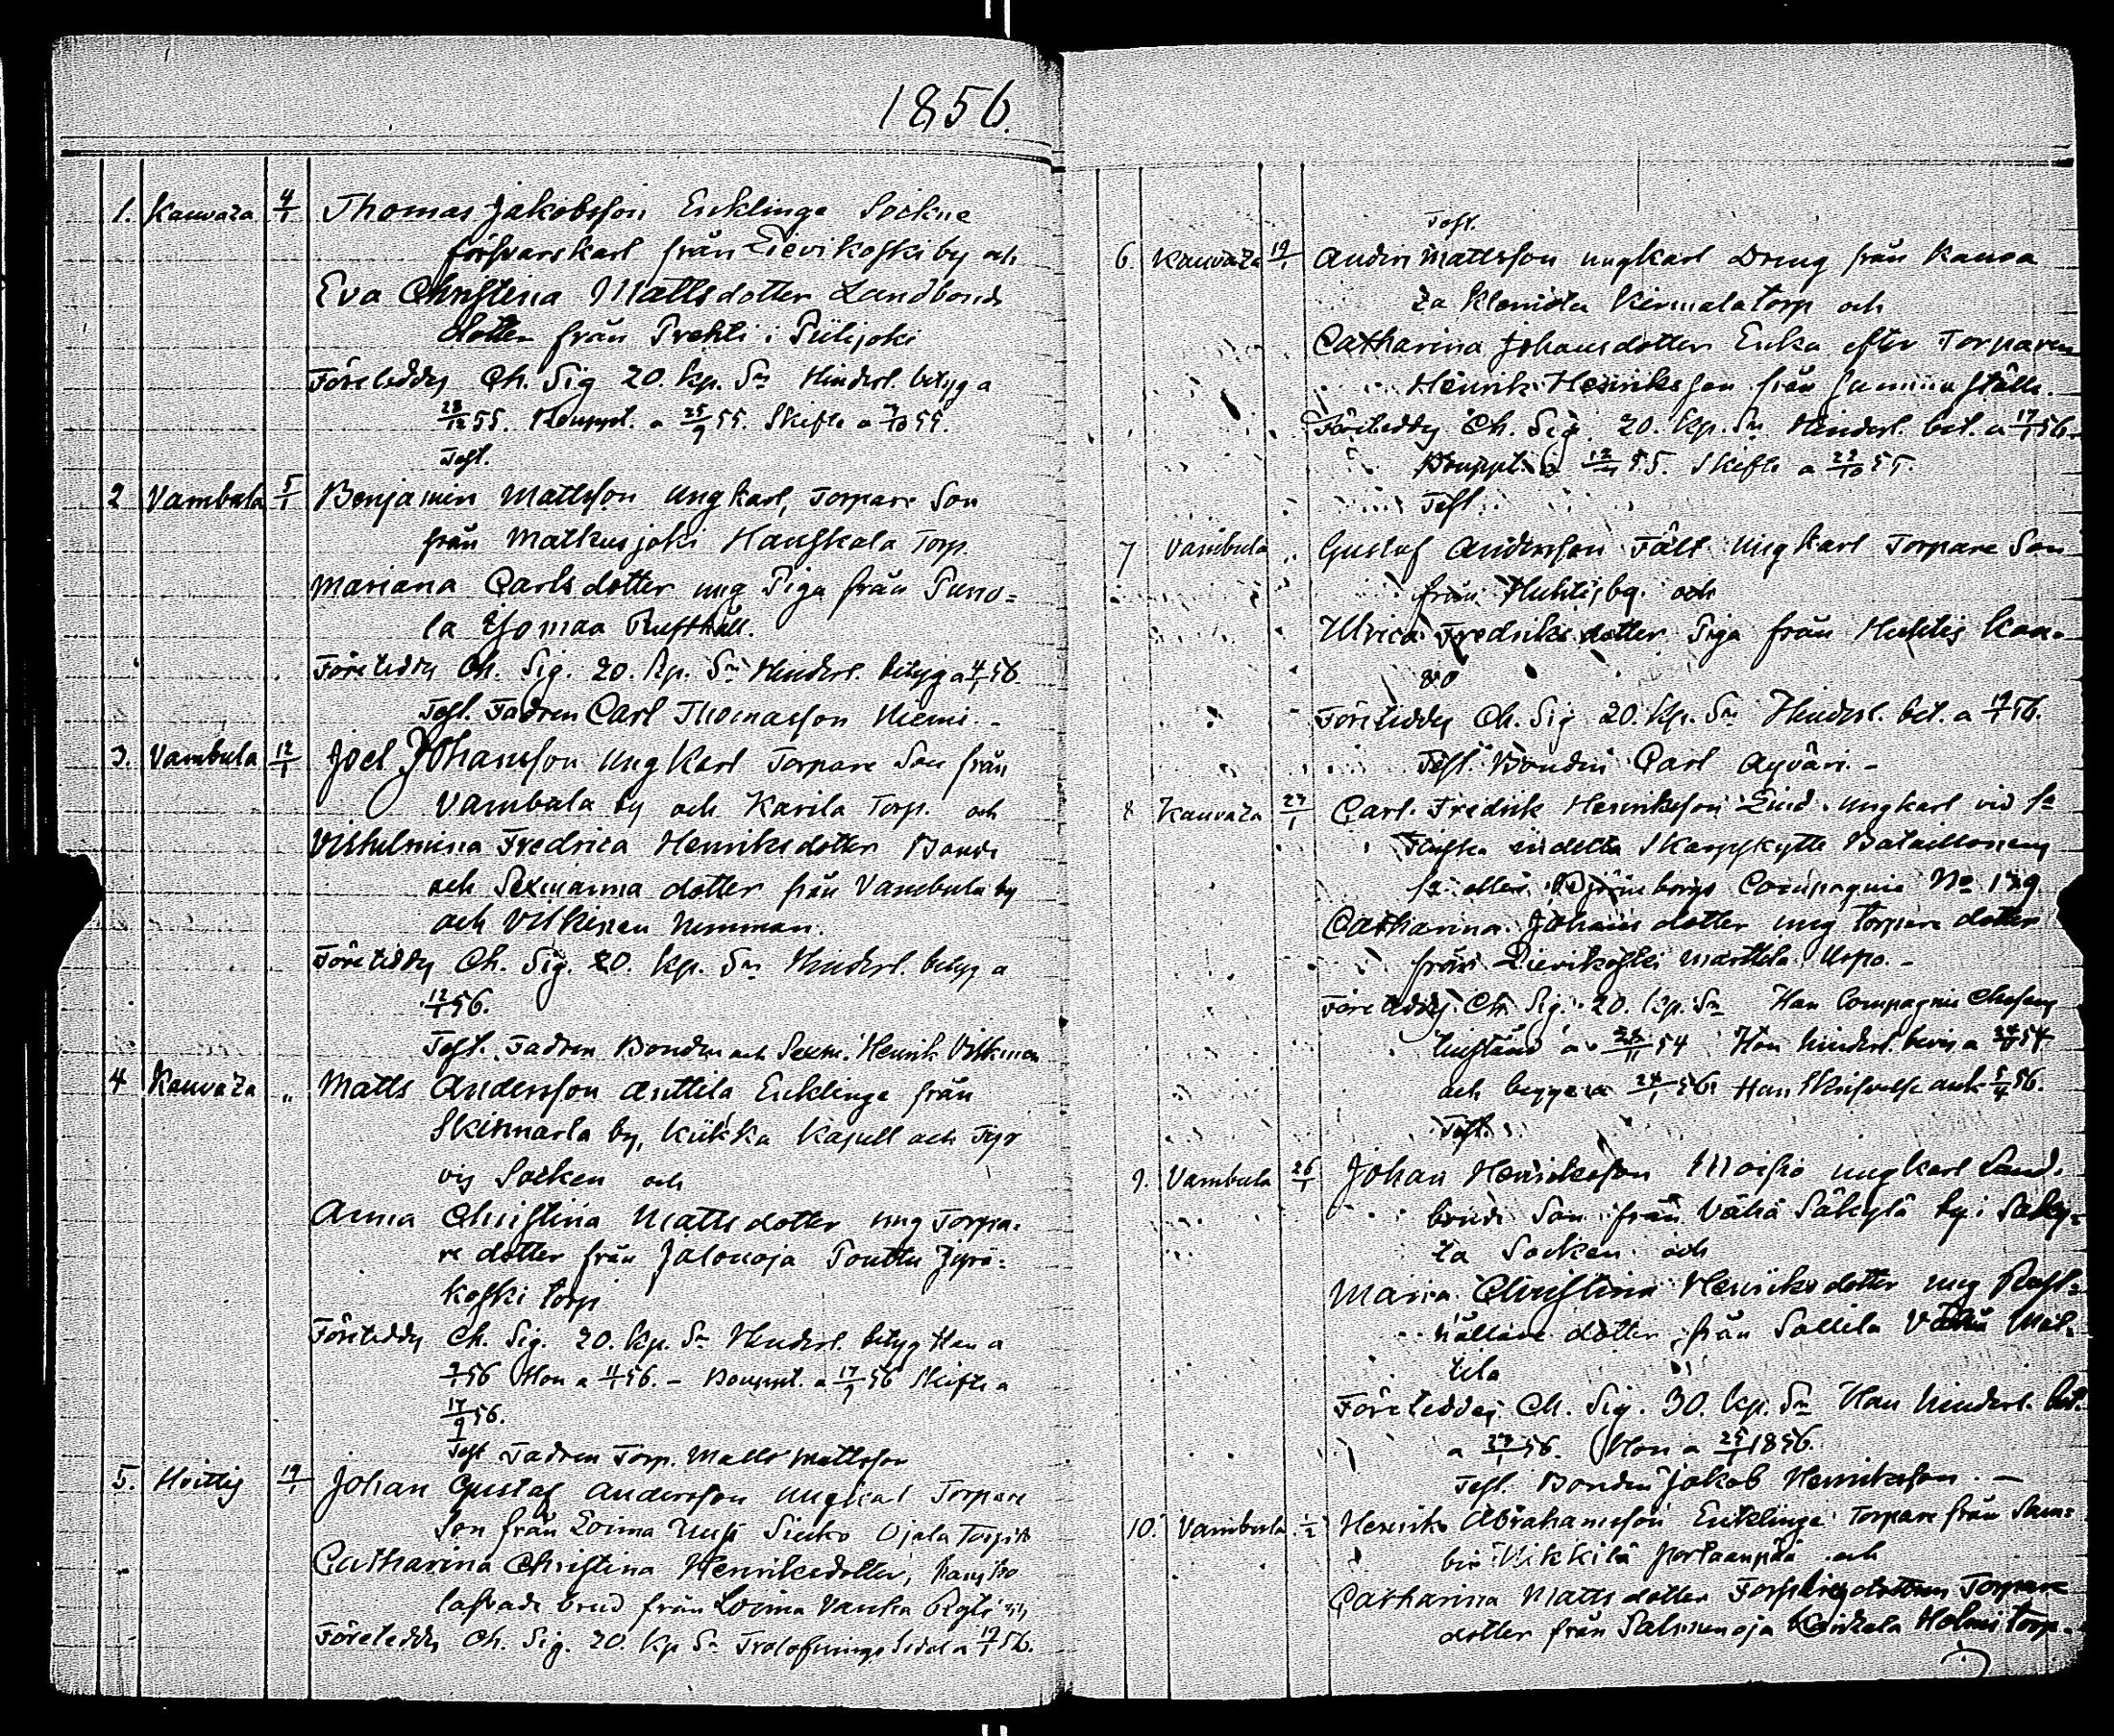 1856.
1. Kauvaza 4/1 Thomas Jakobsson Enklinge Sockne
försvarskarl från Lievikoski by och
Eva Christina Mattsdotter Landbonde
dotter från Prehti i Piilijoki
Företeddes Ch. Sig 20. kp. Sr Hinderl. betyg a
28/12 55. Kouppt. a 25/9 55. Skifte a 7/10 55.
Test.
2 Vambula 5/1 Benjamin Mattsson Ungkarl, Torpare Son
från Matkusjoki Torp
Mariana Carlsdotter ung Piga från Puno=
la Rusthåll.
Företeddes Ch. Sig. 20. kp. Sr Hinderl. betyg a 4/1 56.
Test. Fadren Carl Thomasson Niemi. -
3. Vambula 12/1 Joel Johansson Ungkarl Torpare Son från
Vambula by och Karila Torp. och
Vilhelmina Fredrica Henriksdotter Bonde
och Sexmanna dotter från Vambula by
och Vilkinen hemman.
Företeddes Ch. Sig. 20. kp. Sr Hinderl. betyg a
12/1 56.
Test. Fadren Bonden och Sexm. Henrik Vilkman
4 Kauvaza „ Matts Andersson Anttila Enklinge från
Skinnarla by, Kiikka Kapell och Tyr
vis Socken och
Anna Christina Mattsdotter ung Torpa-
re dotter från Jalonoja Pouttu Jyrä-
koski torp
Företeddes Ch. Sig. 20. kp. Sr Hinderl. betyg Han a
7/1 56 Hon a 11/1 56. - Bouppt. a 17/9 56 Skifte a
17/9 56.
Test Fadren Torp. Matts Mattsson
5. Hvittis 19/1 Johan Gustaf Andersson ungkarl Torpare
Son från Loima Ojala Torp
Catharina Christina Henriksdotter,
lofvade brud från Loima Vanka
Företeddes Ch. Sig. 20. kp Sr Trolofnings Sedel a 19/1 56.
Test.
6. Kauvaza 19/1 Anders Mattsson ungkarl Dreng från Kauva
za Klemola Kinnala torp och
Catharina Johansdotter Enka efter Torparen
Henrik Henriksson från
Företeddes Ch. Sig. 20. kp. Sr Hinderl. bet. a 17/1 56.
Bouppt. a 55. Skifte a 22/10 55.
Test.
7 Vambula „ Gustaf Andersson Fält Ungkarl Torpare Son
från Huhtis by. och
Ulrica Fredriksdotter Piga från Huhtis Kau-
vo
Företeddes Ch. Sig 20. kp. Sr Hinderl. bet. a 19/1 56.
Test. Bonden Carl Ayväri. -
8 Kauvaza 27/1 Carl Fredrik Henriksson Lind. ungkarl vid 1a
Finska indelta Skarpskytte Bataillonens
1a eller Björneborgs Compagnie No 179
Catharina Johansdotter ung torpare dotter
från Lievikoski Marttila Uopo. -
Företeddes Ch. Sig. 20. kp. Sr Han Compagnie Chefens
tillstånd a 54 Hon hinderl. bevis a 54
och begge a 24/1 56. Han 56.
Test.
9. Vambula 26/1 Johan Henriksson Moisio ungkarl Land-
bonde Son från Vähä Säkylä by i Säky-
lä Socken och
Maria Christina Henriksdotter ung Rust-
hållare dotter från Sallila Vähä Mat-
tila
Företeddes Ch. Sig. 30. kp. Sr Han hinderl. bet.
a 27/1 56. Hon a 25/1 1856.
Test. Bonden Jakob Henriksson. -
10. Vambula 1/2 Henrik Abrahamsson Enklinge Torpare från Sam-
bu Nikkilä Portaanpää och
Catharina Mattsdotter Torpare
dotter från Salmenoja Holmi torp.